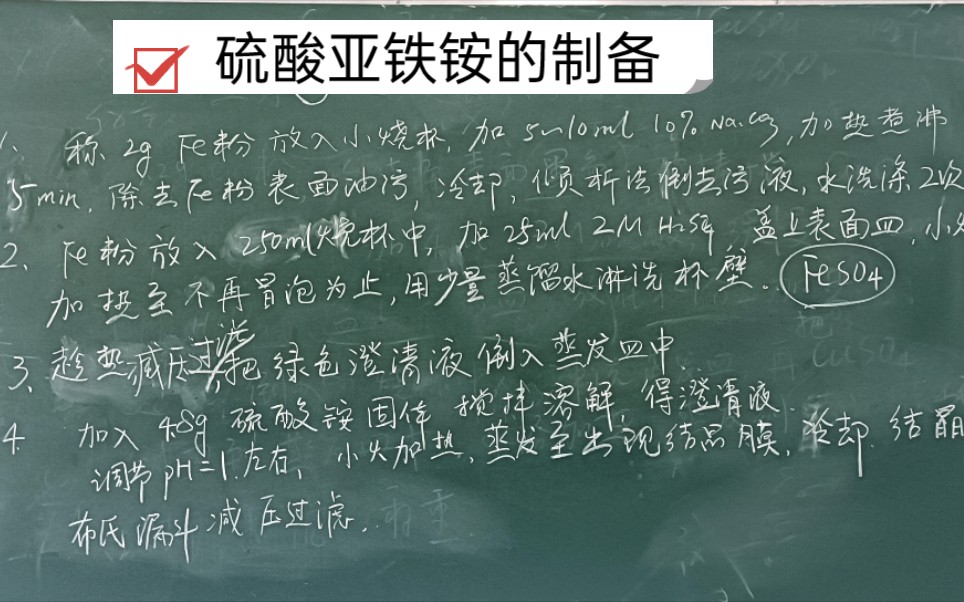 硫酸亚铁铵的制备
1、称2g Fe粉放入小烧杯,加5~10ml 10% Na2CO3,加热煮沸
5min,除去Fe粉表面油污,冷却,倾析法倒去污液,水洗涤2次
2、Fe粉放入250ml烧杯中,加25ml 2M H2SO4,盖上表面皿,小火
加热至不再冒泡为止,用少量蒸馏水淋洗杯壁。FeSO4
3、趁热减压过滤,把绿色澄清液倒入蒸发皿中.
4、加入4.8g硫酸铵固体 搅拌溶解,得澄清液.
调节pH=1.左右,小火加热,蒸发至出现结晶膜,冷却.结晶
布氏漏斗减压过滤.